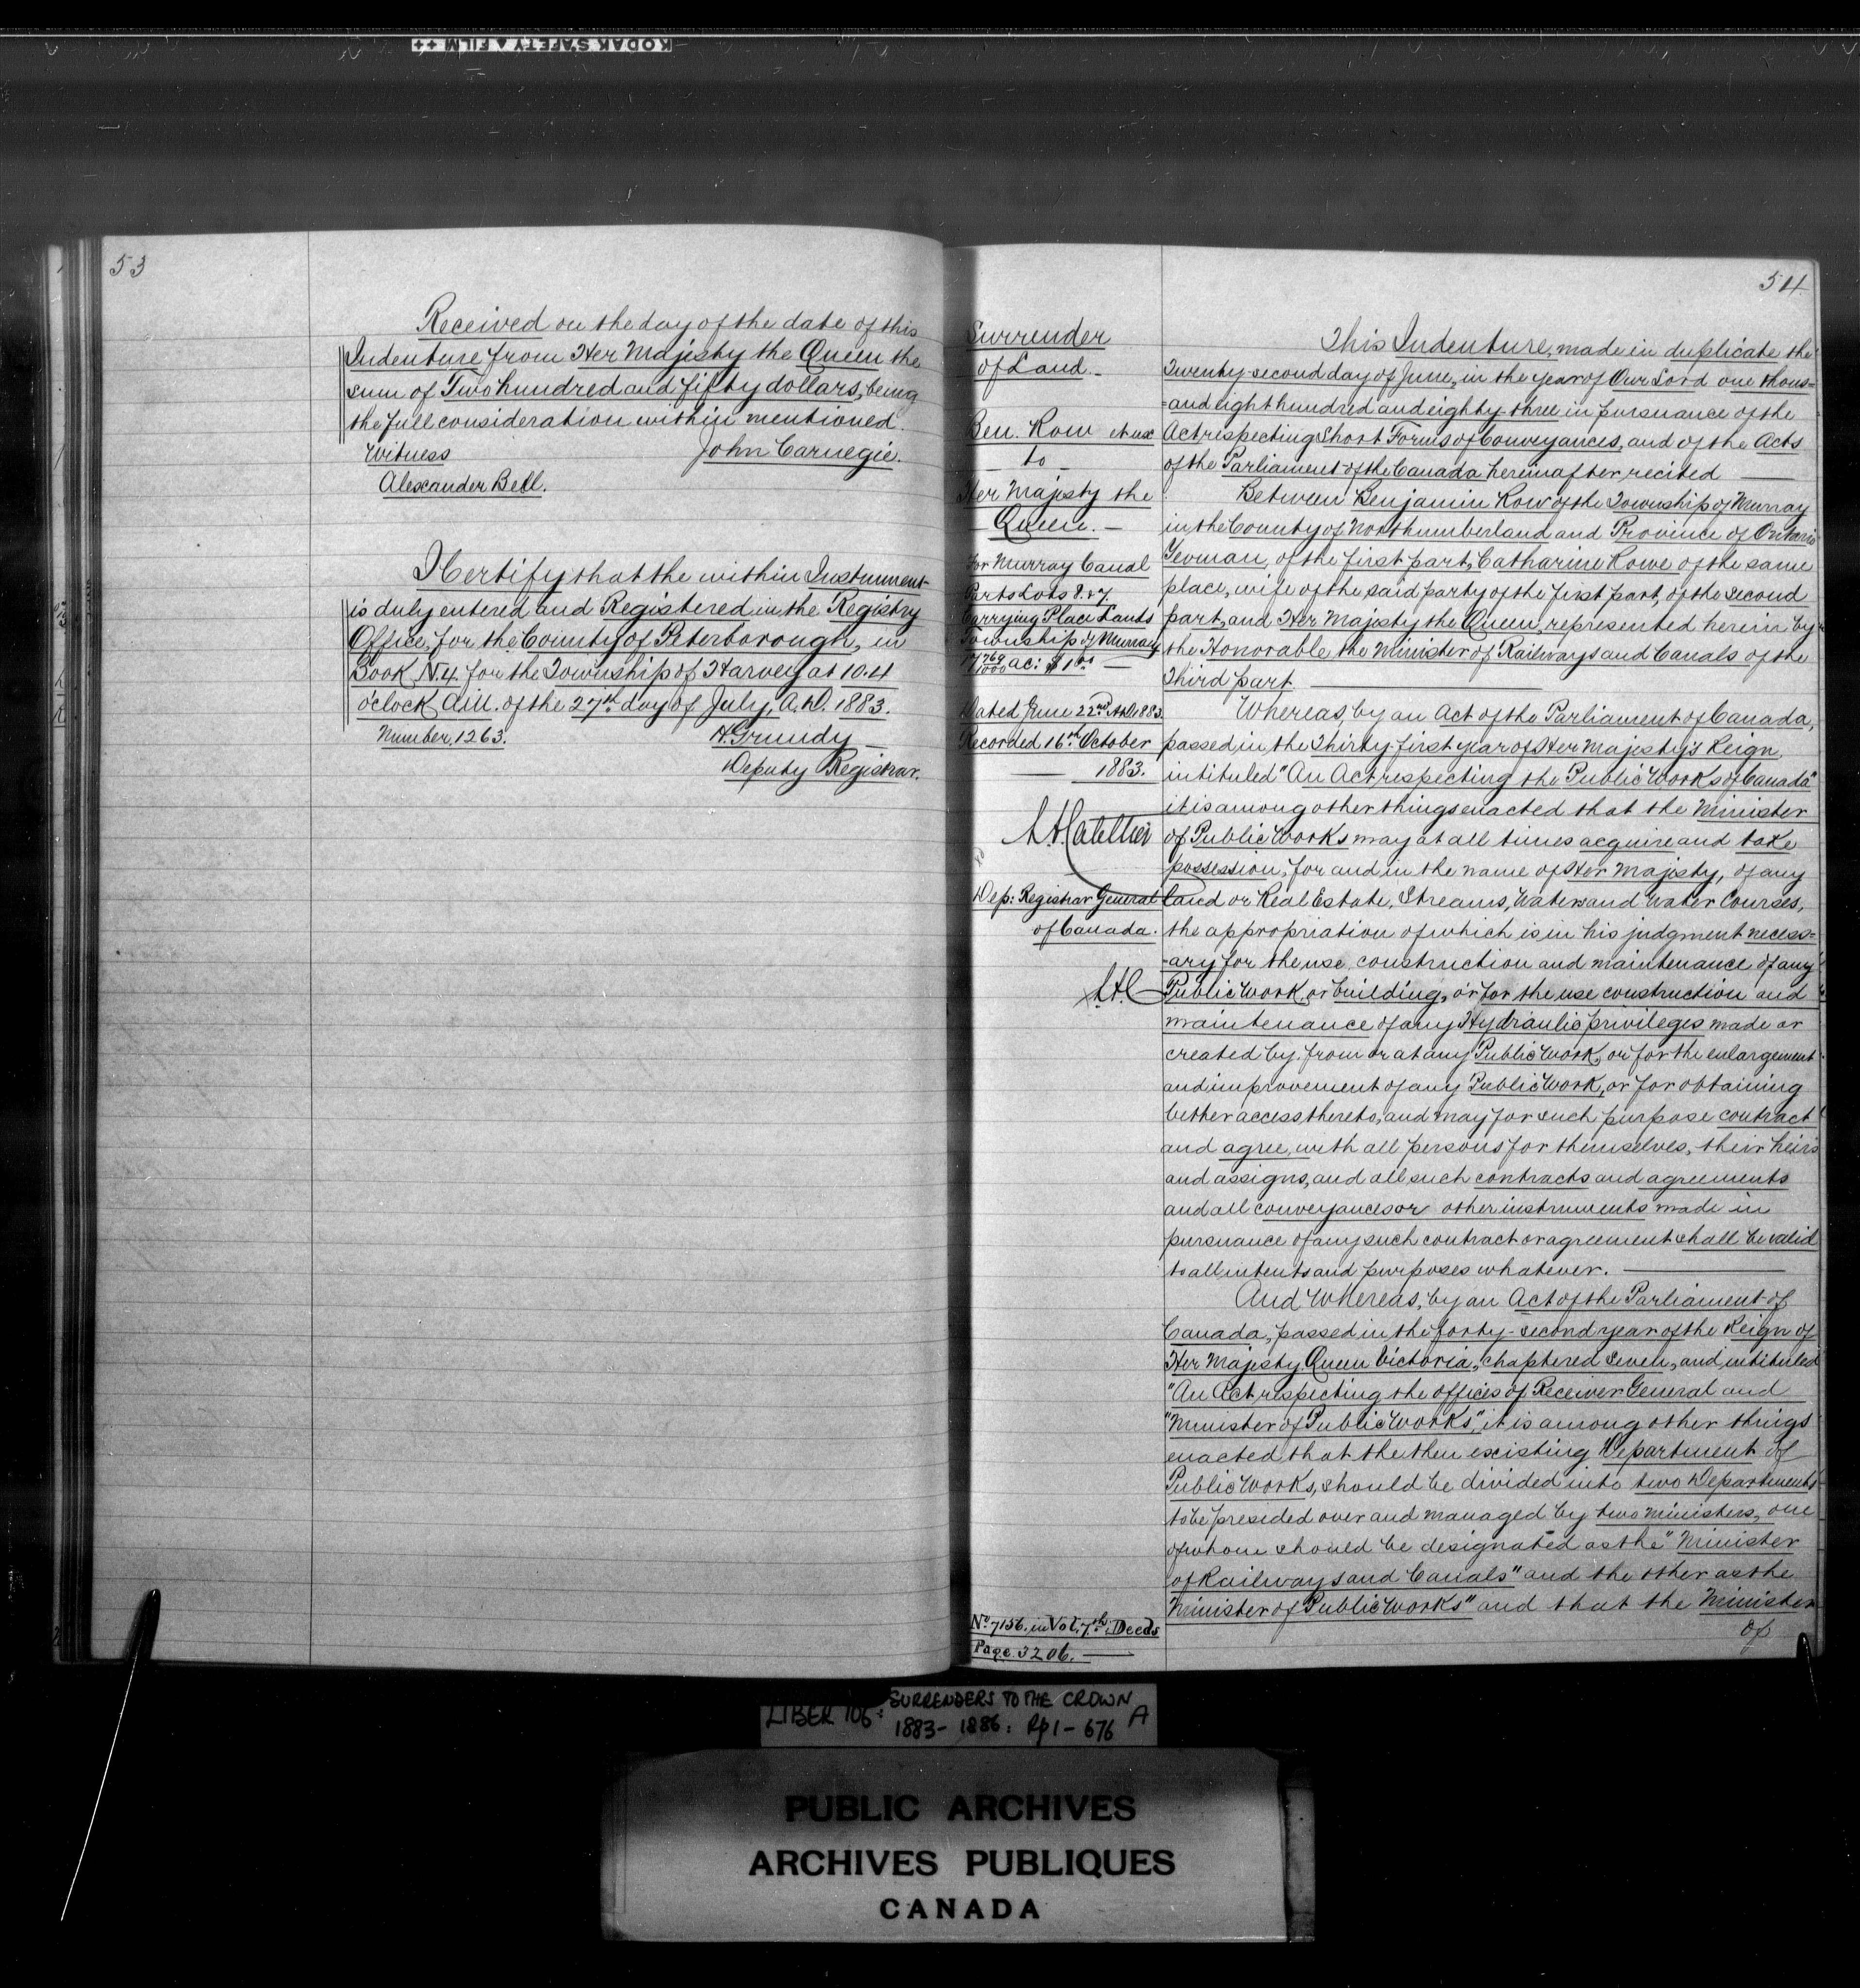 KODAK SAFETY FILM
53
Received on the day of the date of this
Indenture from Her Majesty the Queen the
sum of Two hundred and fifty dollars, being
the full consideration within mentioned.
Witness John Carnegie.
Alexander Bell.
I Certify that the within Instrument
is duly entered and Registered in the Registry
Office, for the County of Peterborough, in
Book N.4. for the Township of Harvey at 10.4
o'clock A.M. of the 27th day of July, A.D. 1883.
Number, 1263. A. Grundy
Deputy Registrar.
54
Surrender
of Land
Ben. Row et ux
to
Her Majesty the
Queen.
For Murray Canal
Parts Lots 8 & 7
Carrying Place Lands
Township of Murray
17 769/1000 ac: $1.00
Dated June 22nd A.D. 1883
Recorded 16th October
1883.
Dep: Registrar General
of Canada.
No. 7156. in Vol. 7th Deeds
Page. 3206.
This Indenture, made in duplicate the
Twenty-second day of June, in the year of Our Lord one thous=
=and eight hundred and eighty-three in pursuance of the
Act respecting Short Forms of Conveyances, and of the Acts
of the Parliament of the Canada hereinafter recited
Between Benjamin Row of the Township of Murray
in the County of Northumberland and Province of Ontario
Yeoman, of the first part, Catharine Rowe of the same
place, wife of the said party of the first part, of the second
part, and Her Majesty the Queen, represented herein by
the Honorable the Minister of Railways and Canals of the
Third part
Whereas, by an Act of the Parliament of Canada,
passed in the Thirty-first year of Her Majesty's Reign
intituled "An Act respecting the Public Works of Canada"
it is among other things enacted that the Minister
of Public Works may at all times acquire and take
possession, for and in the name of Her Majesty, of any
land or Real Estate, Streams, Waters and Water Courses,
the appropriation of which is in his judgment necess=
=ary for the use, construction and maintenance of any
Public Work, or building, or for the use construction and
maintenance of any Hydraulic privileges made or
created by, from or at any Public Work, or for the enlargement
and improvement of any Public Work, or for obtaining
better access thereto, and may for such purpose contract
and agree, with all persons for themselves, their heirs
and assigns, and all such contracts and agreements
and all conveyances or other instruments made in
pursuance of any such contract or agreement shall be valid
to all intents and purposes whatever.
And Whereas, by an Act of the Parliament of
Canada, passed in the forty-second year of the Reign of
Her Majesty Queen Victoria, chaptered Seven, and intituled
"An Act respecting the offices of Receiver General and
"Minister of Public Works," it is among other things
enacted that the then existing Department of
Public Works, should be divided into two Departments
to be presided over and managed by two Ministers, one
of whom should be designated as the "Minister
of Railways and Canals" and the other as the
Minister of Public Works" and that the Minister
of
LIBER 106: SURRENDERS TO THE CROWN A
1883-1886: Pp 1-676
PUBLIC ARCHIVES
ARCHIVES PUBLIQUES
CANADA